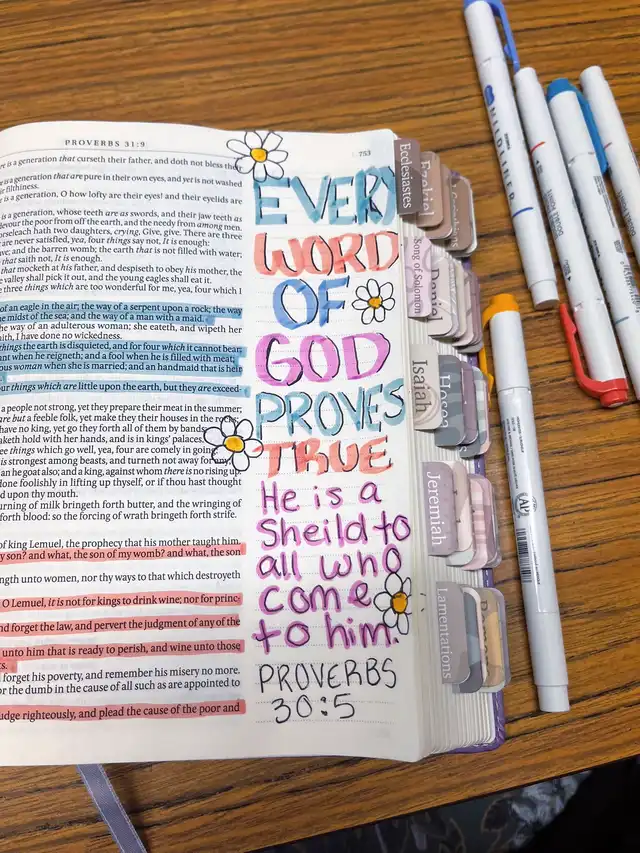 PROVERBS 31:9
753
re is a generation that curseth their father, and doth not bless their
that are pure in their own eyes, and yet is not washed
filthiness.
is a generation, O how lofty are their eyes! and their eyelids are
is a generation, whose teeth are as swords, and their jaw teeth as
devour the poor from off the earth, and the needy from among men.
horseleach hath two daughters, crying, Give, give. There are three
are never satisfied, yea, four things say not, It is enough:
ave; and the barren womb; the earth that is not filled with water;
that saith not, It is enough.
that mocketh at his father, and despiseth to obey his mother, the
valley shall pick it out, and the young eagles shall eat it.
three things which are too wonderful for me, yea, four which I
of an eagle in the air; the way of a serpent upon a rock; the way
the midst of the sea; and the way of a man with a maid.
the way of an adulterous woman; she eateth, and wipeth her
saith, I have done no wickedness.
things the earth is disquieted, and for four which it cannot bear:
ant when he reigneth; and a fool when he is filled with meat;
ous woman when she is married; and an handmaid that is heir
our things which are little upon the earth, but they are exceed-
a people not strong, yet they prepare their meat in the summer;
are but a feeble folk, yet make they their houses in the rocks;
have no king, yet go they forth all of them by bands;
taketh hold with her hands, and is in kings' palaces.
ee things which go well, yea, four are comely in going:
is strongest among beasts, and turneth not away for any;
an he goat also; and a king, against whom there is no rising up.
done foolishly in lifting up thyself, or if thou hast thought
d upon thy mouth.
urning of milk bringeth forth butter, and the wringing of
forth blood: so the forcing of wrath bringeth forth strife.
of king Lemuel, the prophecy that his mother taught him.
y son? and what, the son of my womb? and what, the son
ngth unto women, nor thy ways to that which destroyeth
O Lemuel, it is not for kings to drink wine; nor for princ-
nd forget the law, and pervert the judgment of any of the
unto him that is ready to perish, and wine unto those
ts.
forget his poverty, and remember his misery no more.
or the dumb in the cause of all such as are appointed to
udge righteously, and plead the cause of the poor and
EVERY
WORD
OF
GOD
PROVES
TRUE
He is a
Sheild to
all who
come
to him.
PROVERBS
30:5
Ecclesiastes
Ezekiel
Song of Solomon
Daniel
Isaiah
Hosea
Jeremiah
Lamentations
MILDLINER